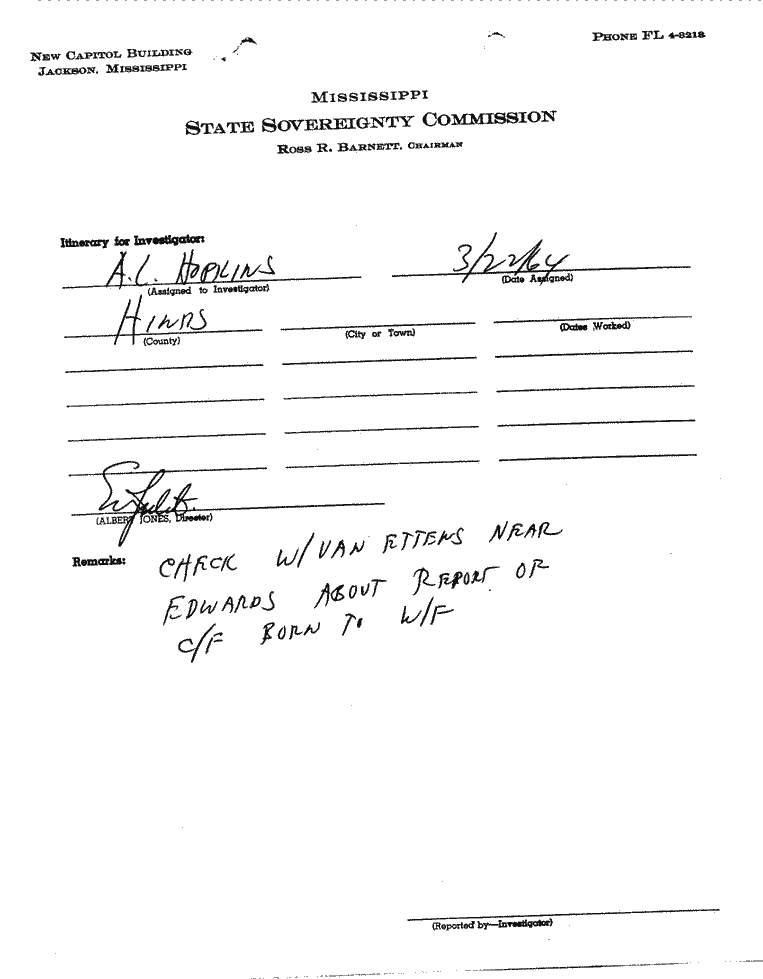 NEW CAPITOL BUILDING
JACKSON, MISSISSIPPI
PHONE FL 4-8218
MISSISSIPPI
STATE SOVEREIGNTY COMMISSION
ROSS R. BARNETT, CHAIRMAN
Itinerary for Investigator:
A.L. HOPKINS 3/22/64
(Assigned to Investigator) (Date Assigned)
HINDS
(County) (City or Town) (Dates Worked)
(ALBERT JONES, Director)
Remarks: CHECK W/ VAN ETTENS NEAR
EDWARDS ABOUT REPORT OF
C/F BORN TO W/F
(Reported by—Investigator)